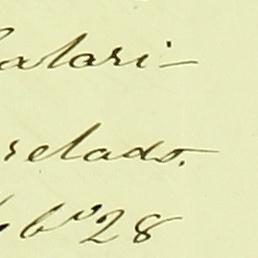 alari-
relado.
bº 28